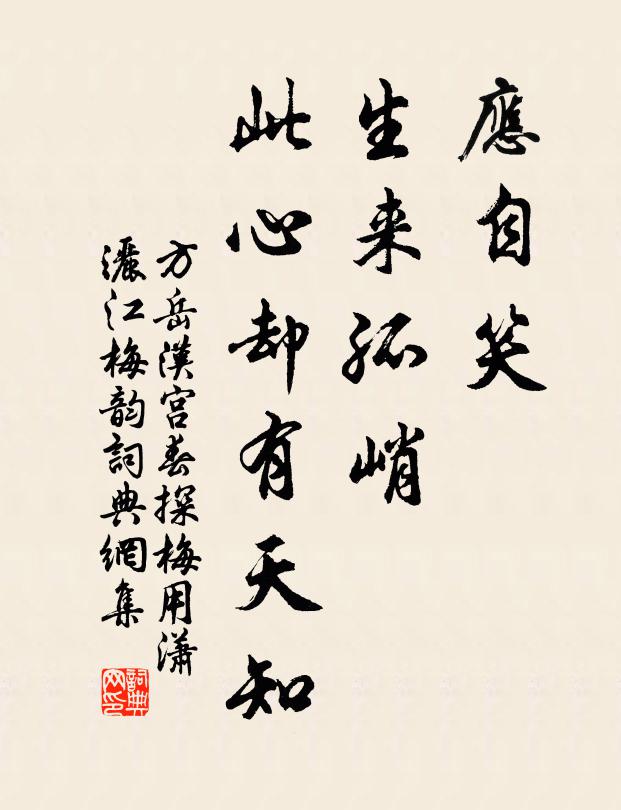 應自笑
生来孤峭
此心却有天知
方岳漢宮春探梅用瀟
灑江梅韵詞典網集
詞典
网印